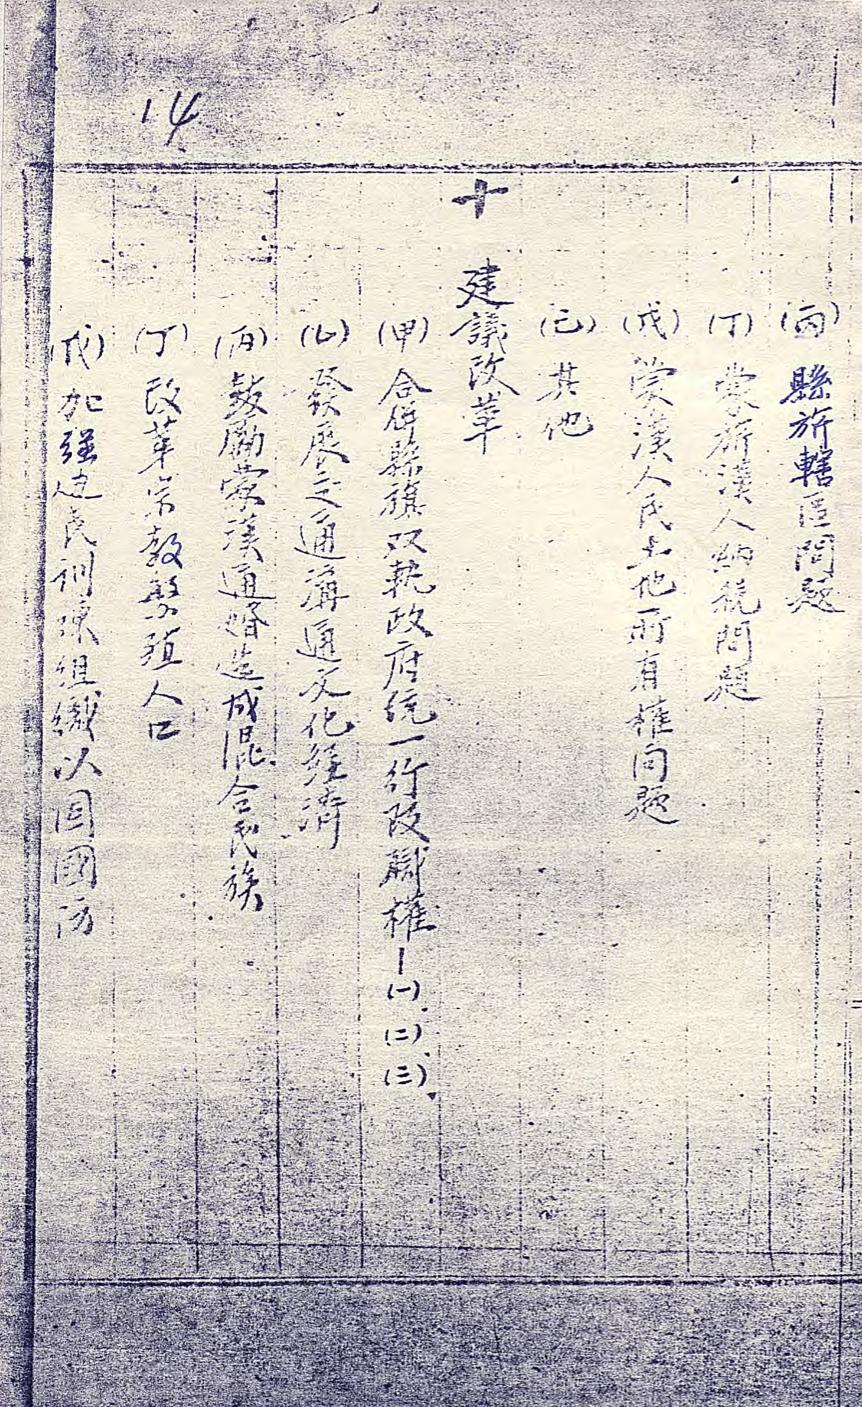 14
(丙) 縣旂轄區問題
(丁) 蒙旂漢人納税問題
(戊) 蒙漢人民土地所有權问題
(己) 其他
十 建議改革
(甲) 合併縣旗双軌政府统一行政职權—(一)(二)(三)
(乙) 發展交通溝通文化經濟
(丙) 鼓勵蒙漢通婚造成混合民族
(丁) 改革宗教繁殖人口
(戊) 加强边民训練组織以固國防